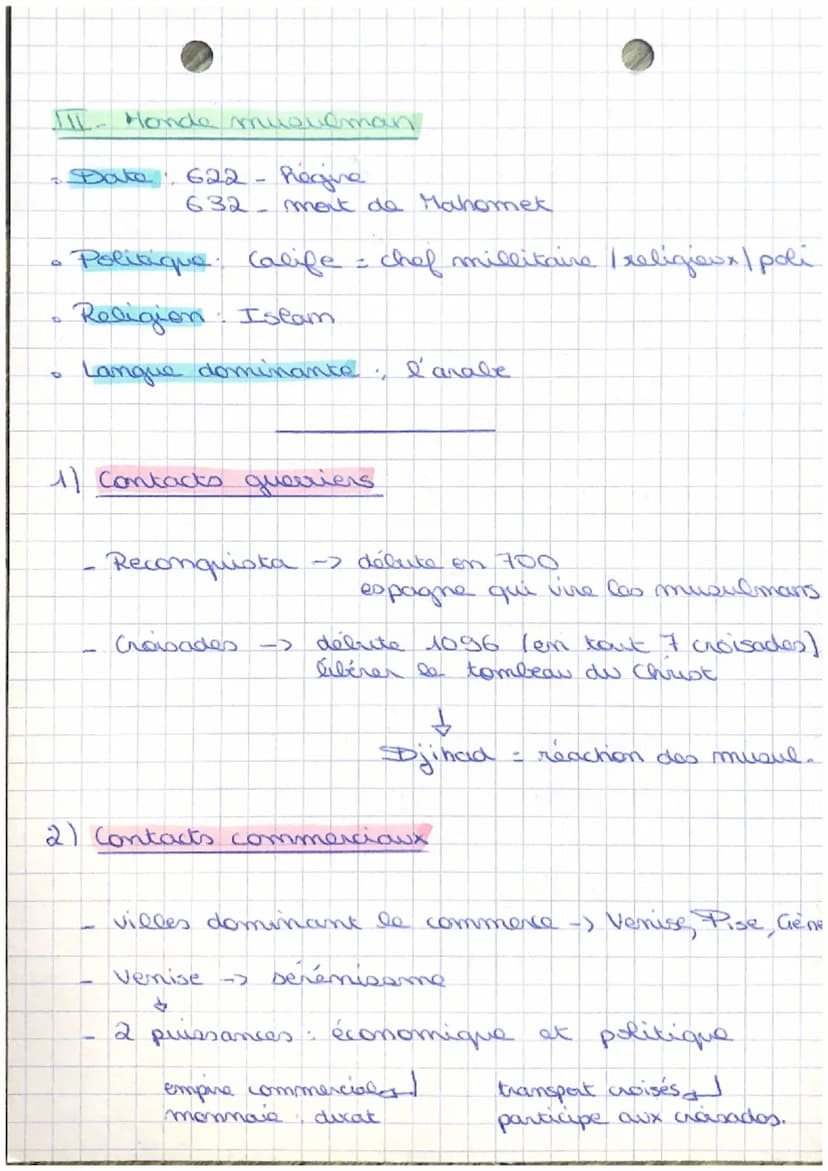 III - Monde musulman
Date : 622 - Hégire
632 - mort de Mahomet
Politique : Calife = chef millitaire / religieux / poli
Religion : Islam
Langue dominante : l'arabe
1) Contacts guerriers
- Reconquista -> débute en 700
espagne qui vire les musulmans
- Croisades -> débute 1096 (en tout 7 croisades)
libérer le tombeau du Christ
↓
Djihad = réaction des musul.
2) Contacts commerciaux
- villes dominant le commerce -> Venise, Pise, Gène
- Venise -> sérénissme
↓
- 2 puissances : économique et politique
empire commercial transport croisés
monnaie : ducat participe aux croisades.